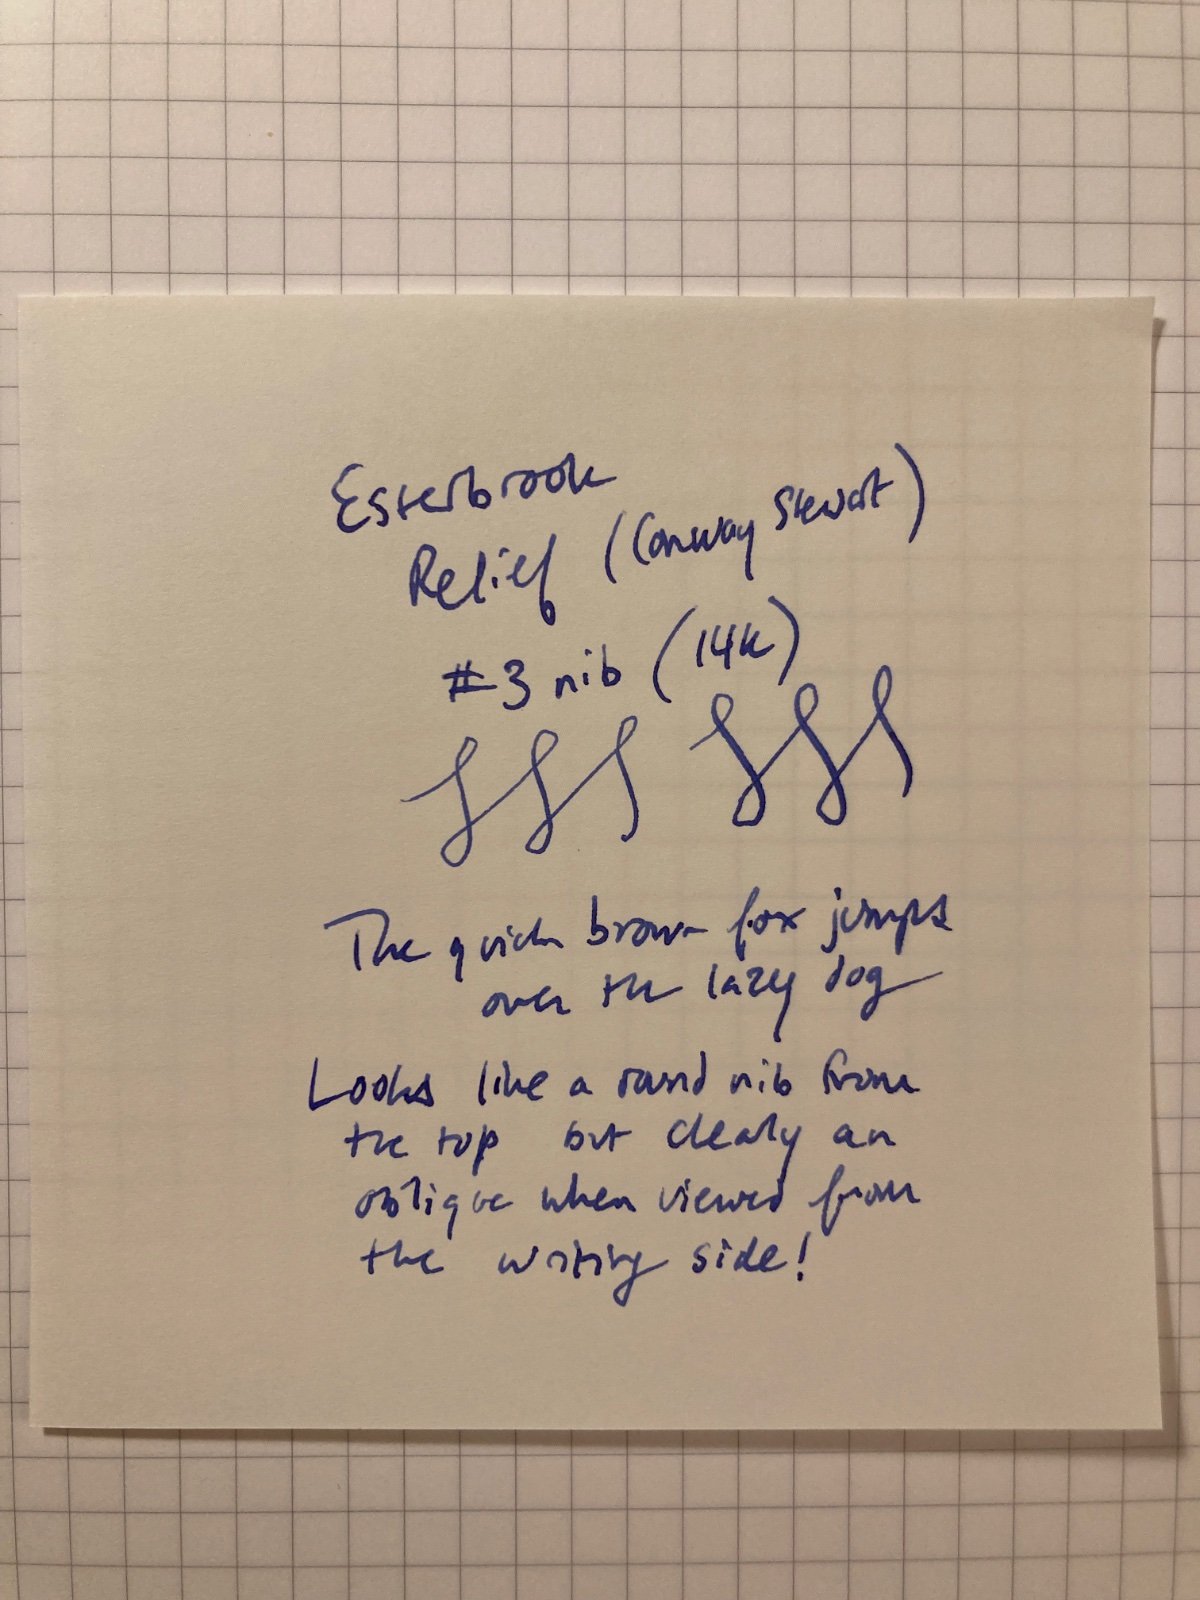 Esterbrook
Relief (Conway Stewart)
#3 nib (14K)
The quick brown fox jumps
over the lazy dog
Looks like a round nib from
the top but clearly an
oblique when viewed from
the writing side!